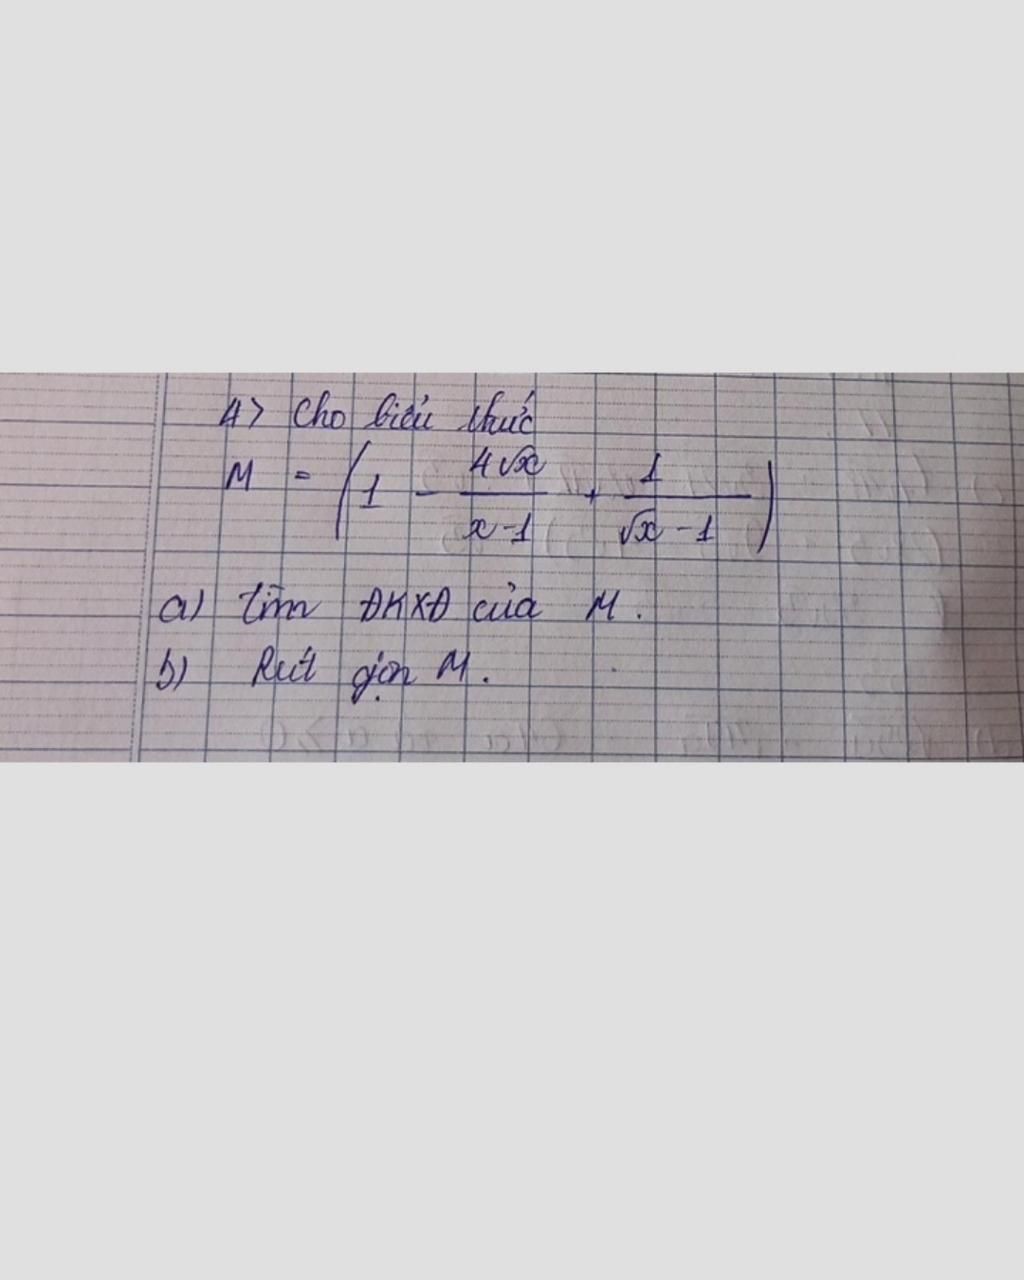 4> Cho biểu thức
M = (1 - 4√x / x-1 + 1 / √x - 1)
a) tìm ĐKXĐ của M.
b) Rút gọn M.